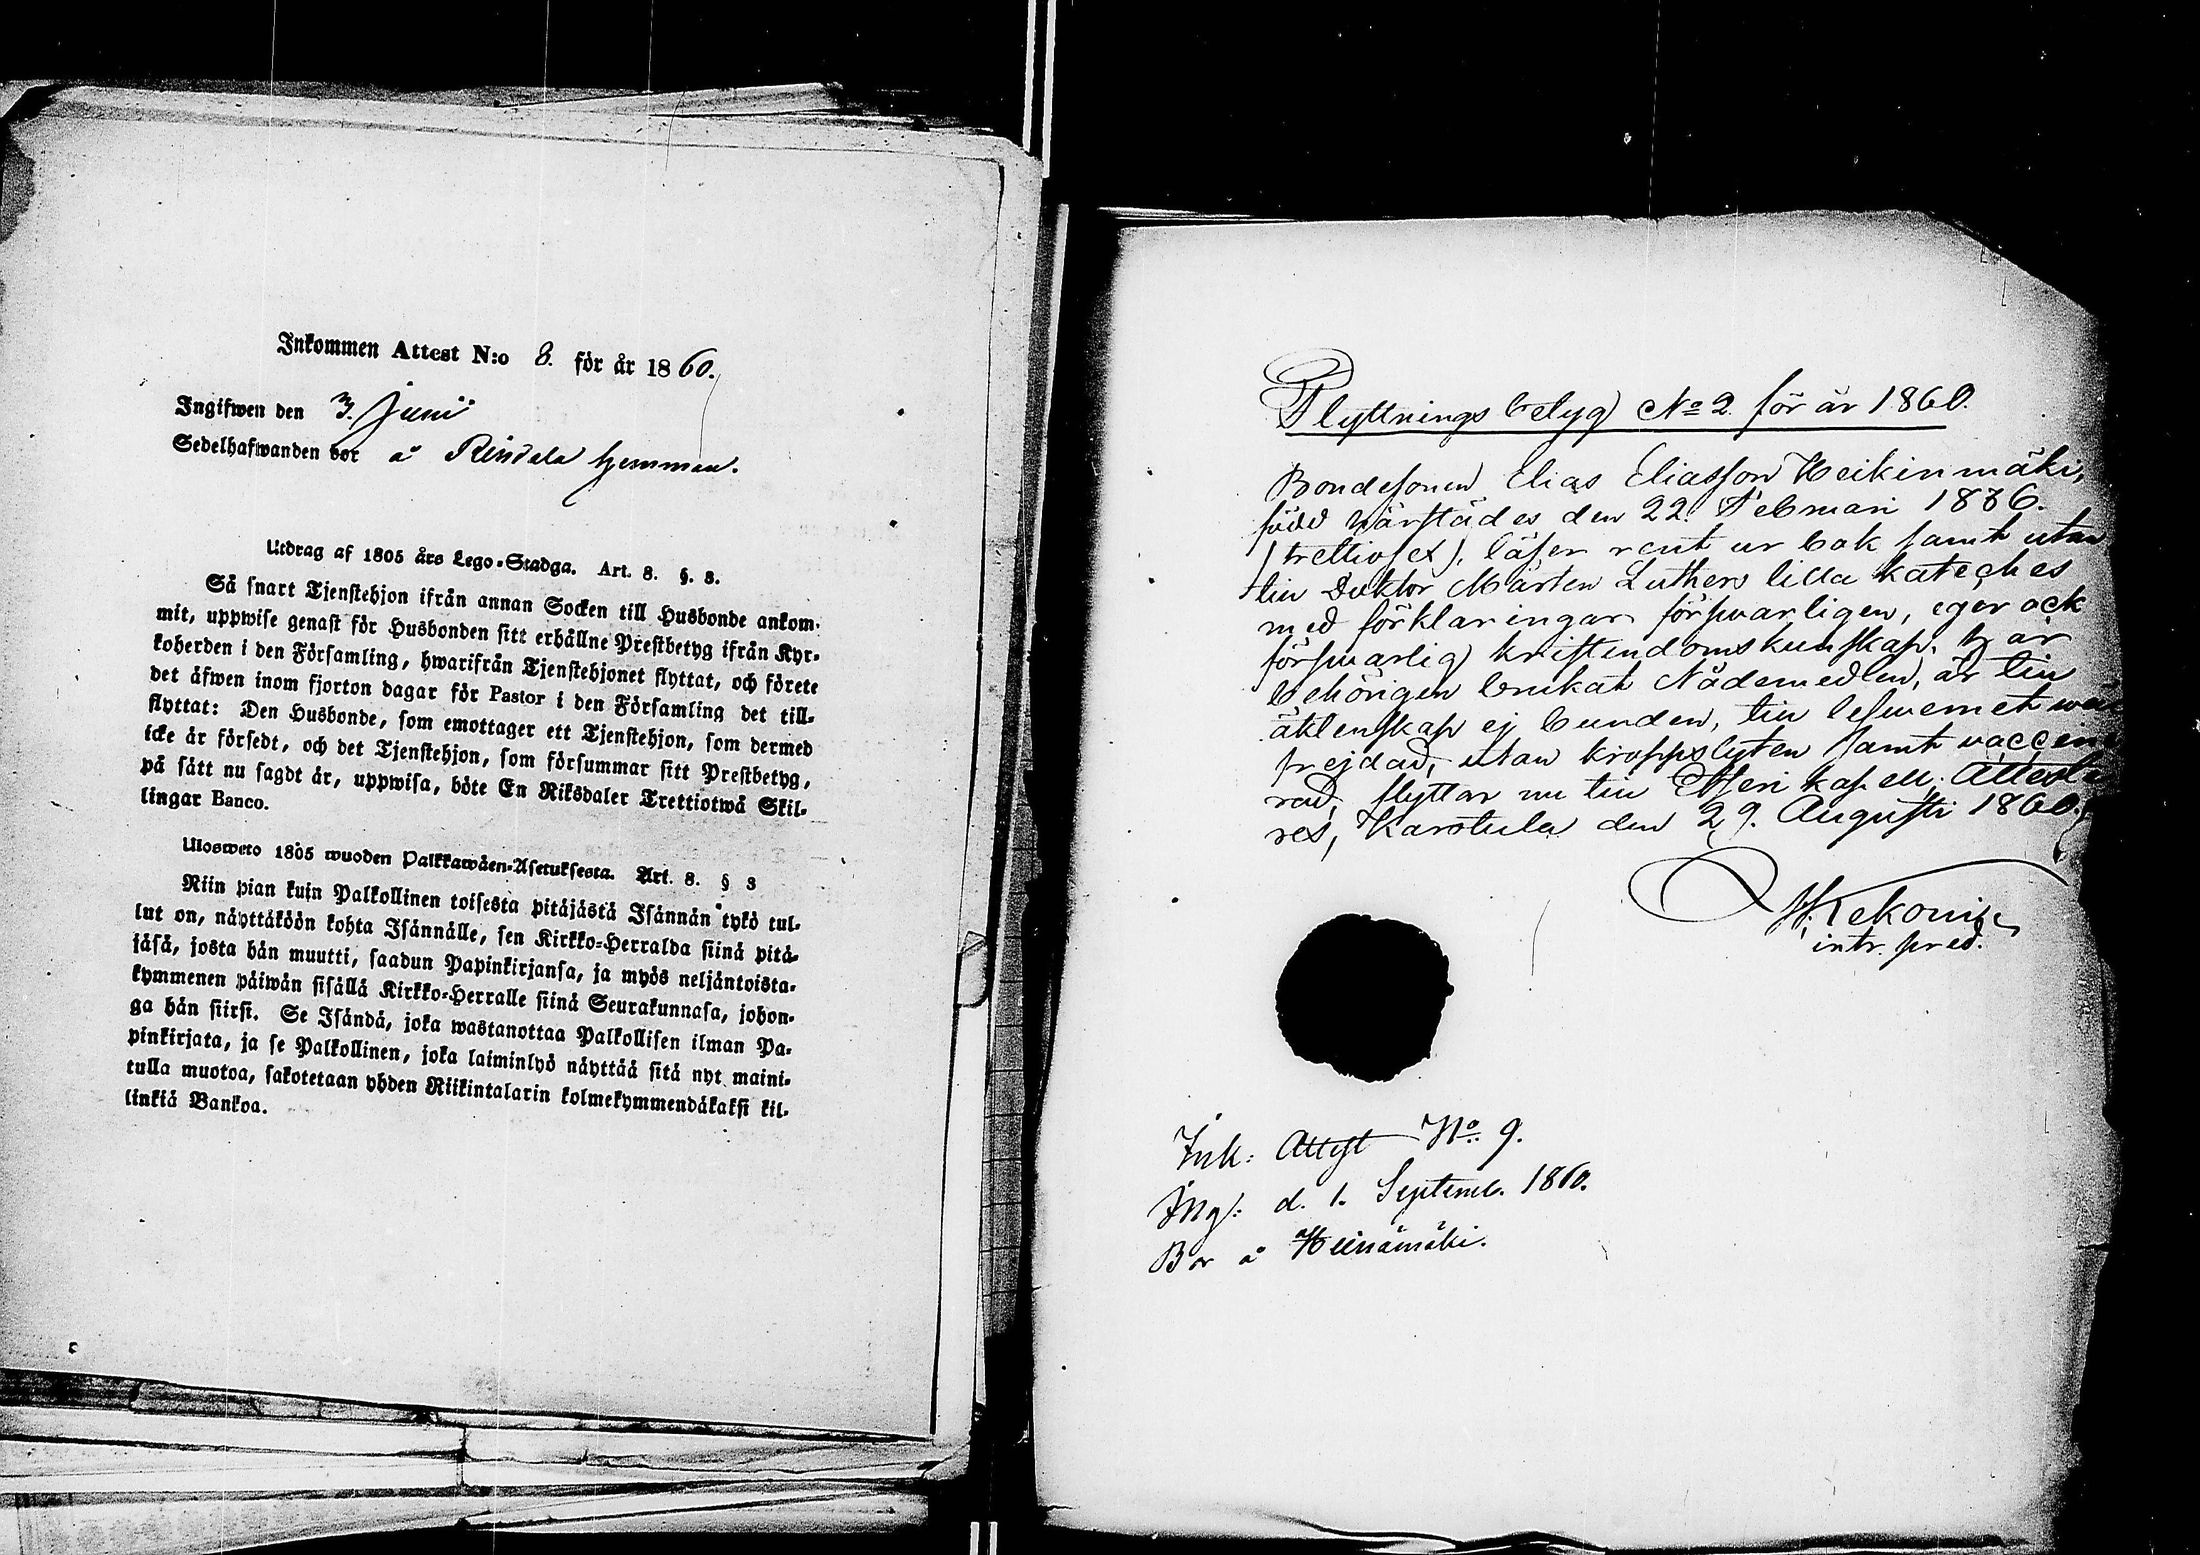 Inkommen Attest N:o 8. för år 1860.
Ingifwen den 3. Junii
Sedelhafwanden bor å Rindala hemman.
Utdrag af 1805 års Lego-Stadga. Art. 8. §. 3.
Så snart Tjenstehjon ifrån annan Socken till Husbonde ankom-
mit, uppwise genast för Husbonden sitt erhållne Prestbetyg ifrån Kyr-
koherden i den Församling, hwarifrån Tjenstehjonet flyttat, och förete
det äfwen inom fjorton dagar för Pastor i den Församling det till-
flyttat: Den Husbonde, som emottager ett Tjenstehjon, som dermed
icke är försedt, och det Tjenstehjon, som försummar sitt Prestbetyg,
på sätt nu sagdt är, uppwisa, böte En Riksdaler Trettiotwå Skil-
lingar Banco.
Ulosweto 1805 wuoden Palkkawäen-Asetuksesta. Art. 8. § 3
Niin pian kuin Palkollinen toisesta pitäjästä Isännän tykö tul-
lut on, näyttäköön kohta Isännälle, sen Kirkko-Herralda siinä pitä-
jäsä, josta hän muutti, saadun Papinkirjansa, ja myös neljäntoista-
kymmenen päiwän sisällä Kirkko-Herralle siinä Seurakunnasa, johon-
ga hän siirsi. Se Isändä, joka wastanottaa Palkollisen ilman Pa-
pinkirjata, ja se Palkollinen, joka laiminlyö näyttää sitä nyt maini-
tulla muotoa, sakotetaan yhden Riikintalarin kolmekymmendäkaksi kil-
linkiä Bankoa.
Flyttningsbetyg No 2. för år 1860.
Bondesonen Elias Eliasson Heikinmäki,
född härstädes den 22. Februari 1836.
(trettiosex), läser rent ur bok samt utan
till Doktor Mårten Luthers lilla kateches
med förklaringar försvarligen, eger ock
försvarlig kristendomskunskap, har
behörigen brukat Nådemedlen, är till
äktenskap ej bunden, till lefwernet wäl
frejdad, utan kroppslyten samt vaccine
rad, flyttar nu till Etseri kapell. Atteste
res, Karstula den 29. Augusti 1860.
intr. pred.
Ink: Attest No 9.
Ing: d. 1. Septemb. 1860.
Bor å Heinämäki.